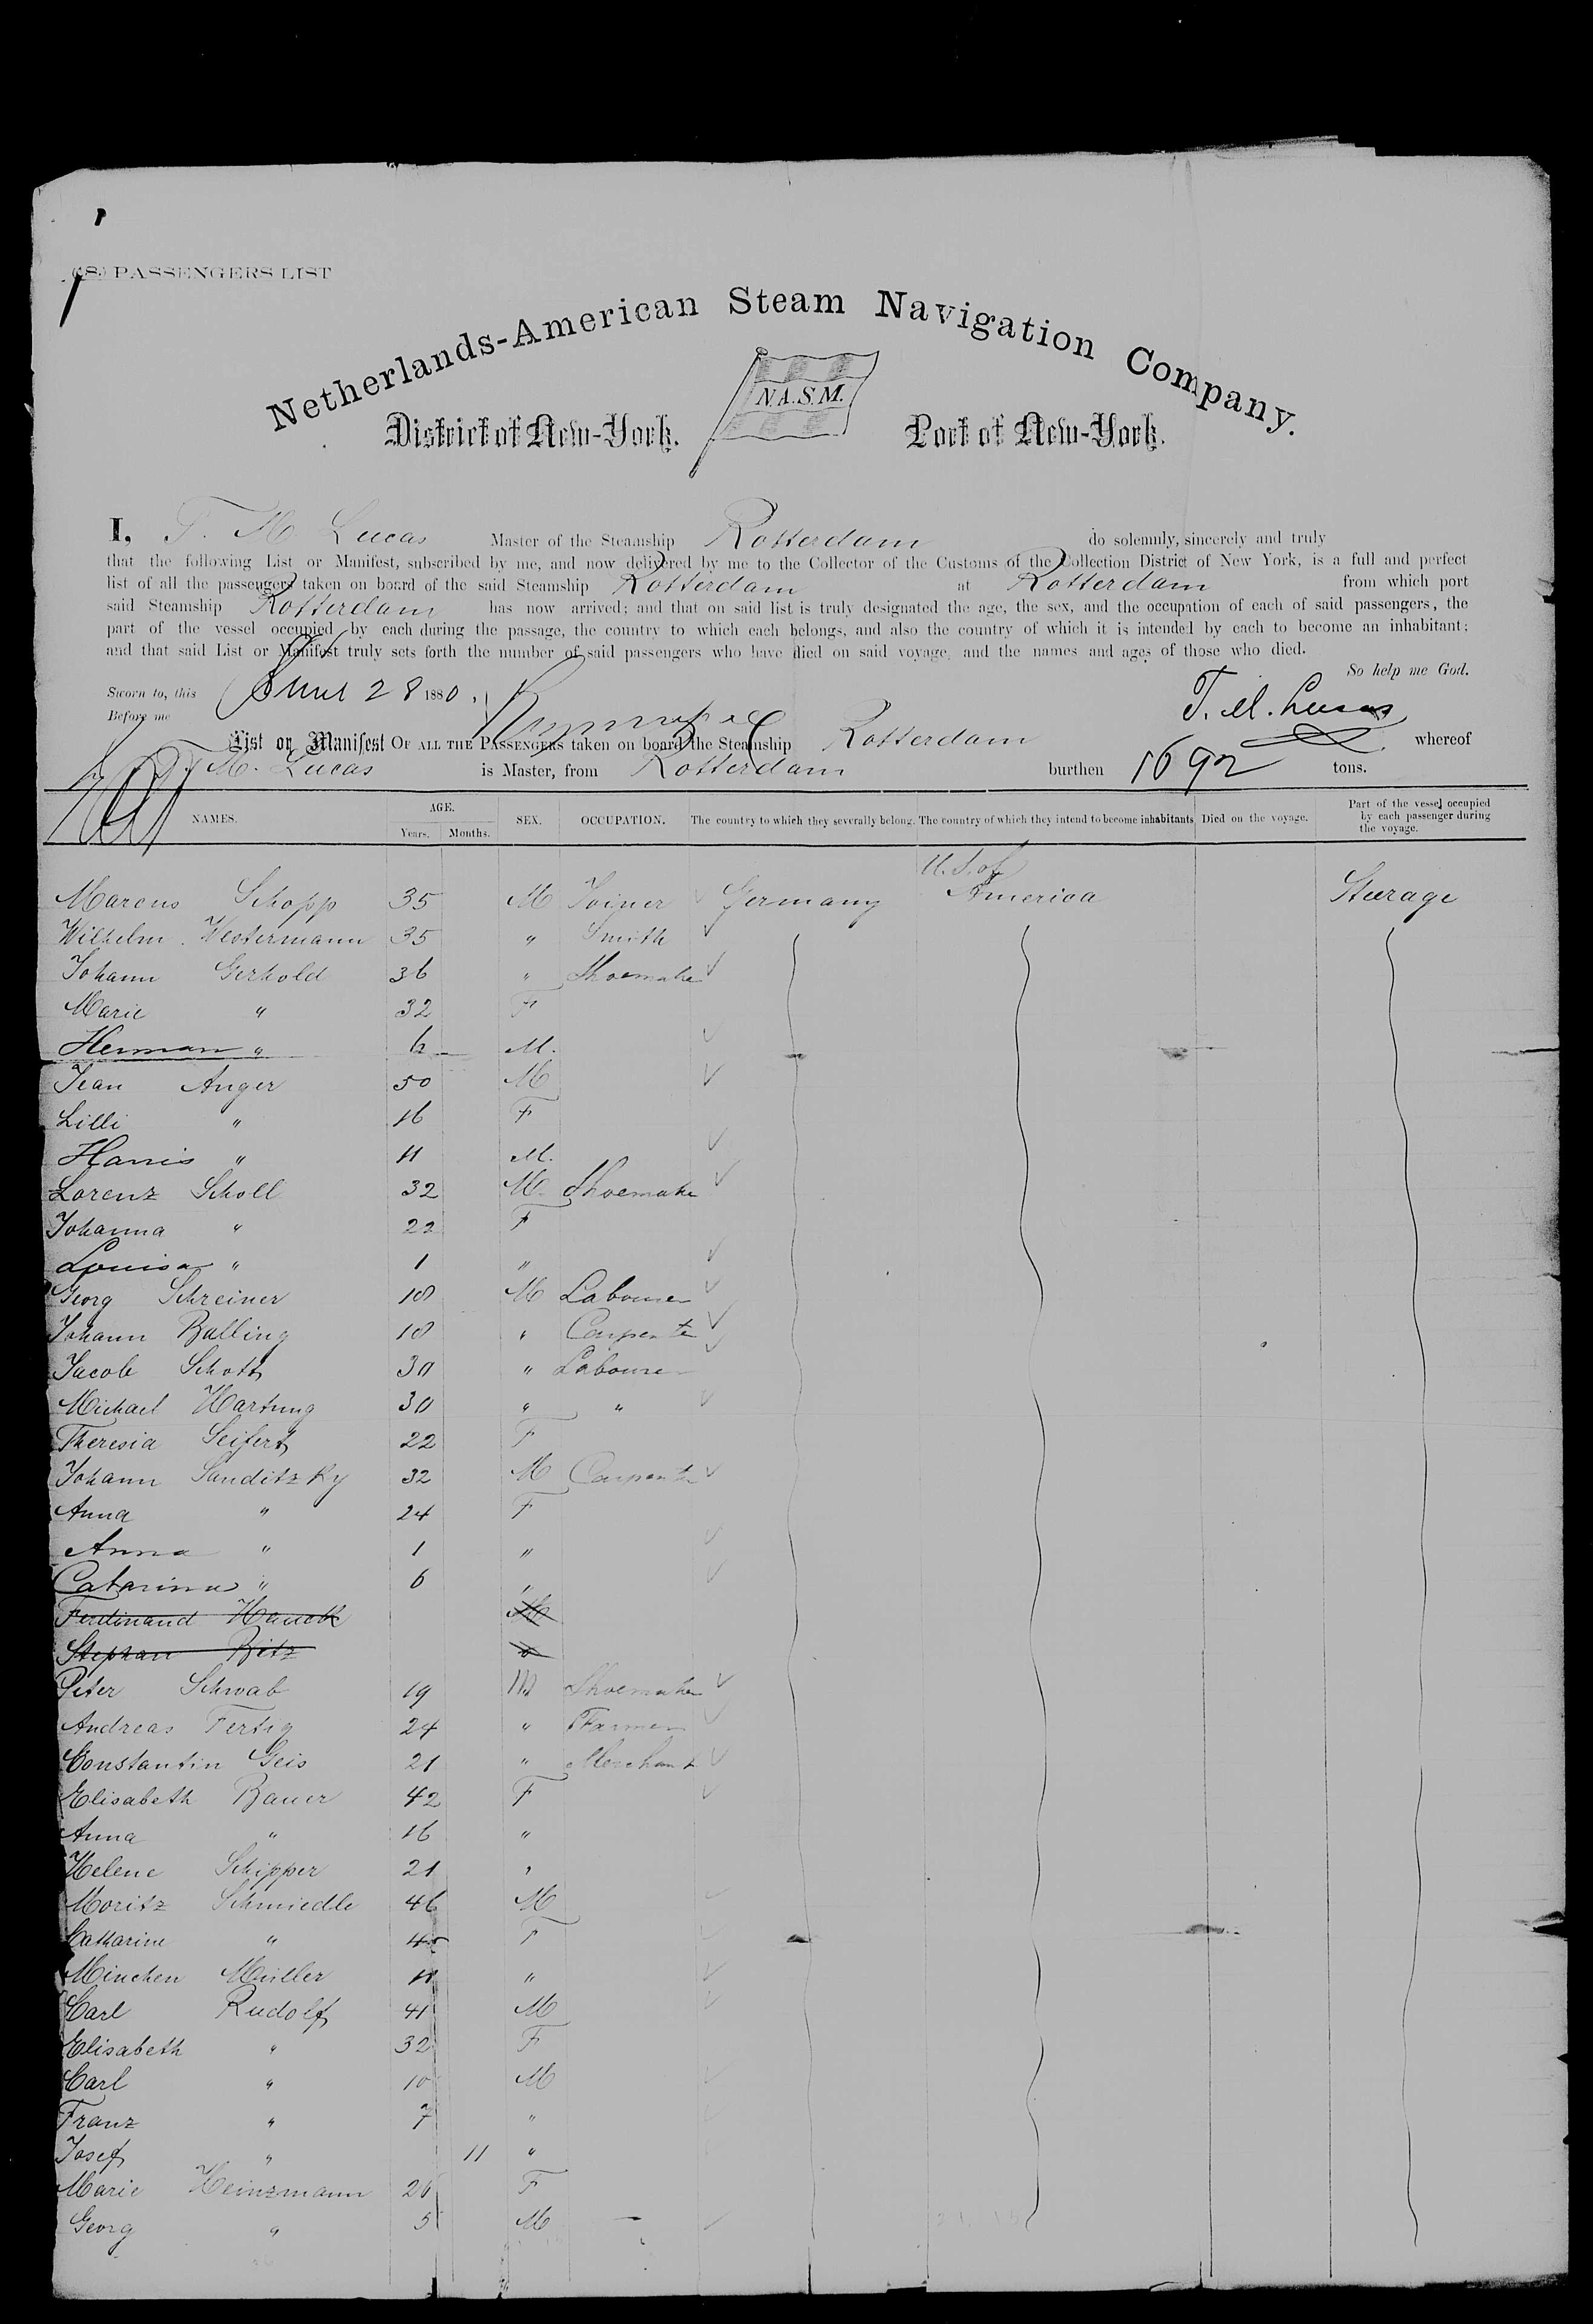 (S) PASSENGERS LIST
Netherlands-American Steam Navigation Company.
N.A.S.M.
District of New-York. Port of New-York.
I, F. M. Lucas Master of the Steamship Rotterdam do solemnly, sincerely and truly
that the following List or Manifest, subscribed by me, and now delivered by me to the Collector of the Customs of the Collection District of New York, is a full and perfect
list of all the passengers taken on board of the said Steamship Rotterdam at Rotterdam from which port
said Steamship Rotterdam has now arrived; and that on said list is truly designated the age, the sex, and the occupation of each of said passengers, the
part of the vessel occupied by each during the passage, the country to which each belongs, and also the country of which it is intended by each to become an inhabitant;
and that said List or Manifest truly sets forth the number of said passengers who have died on said voyage, and the names and ages of those who died.
So help me God.
Sworn to, this 28 1880.
Before me
T. M. Lucas
List or Manifest OF ALL THE PASSENGERS taken on board the Steamship Rotterdam whereof
M. Lucas is Master, from Rotterdam burthen 1692 tons.
NAMES. AGE. Years. Months. SEX. OCCUPATION. The country to which they severally belong. The country of which they intend to become inhabitants Died on the voyage. Part of the vessel occupied by each passenger during the voyage.
U. S. of
Marcus Schopp 35 M Joiner Germany America Steerage
Wilhelm Westermann 35 " Smith
Johann Gerhold 36 " Shoemaker
Marie " 32 F
Herman " 6 M.
Jean Anger 50 M
Lilli " 16 F
Harris " 11 M.
Lorenz Scholl 32 M. Shoemaker
Johanna " 22 F
Louisa " 1 "
Georg Schreiner 18 M Labourer
Johann Balling 18 " Carpenter
Jacob Schott 30 " Labourer
Michael Hartung 30 " "
Theresia Seifert 22 F
Johann Sanditzky 32 M Carpenter
Anna " 24 F
Anna " 1 "
Catarina " 6 "
Ferdinand Hauck M
Stephan Ritz "
Peter Schwab 19 M Shoemaker
Andreas Fertig 24 " Farmer
Constantin Geis 21 " Merchant
Elisabeth Bauer 42 F
Anna " 16 "
Helene Schipper 21 "
Moritz Schmiedle 46 M
Catharine " 45 F
Minchen Müller 11 "
Carl Rudolf 41 M
Elisabeth " 32 F
Carl " 10 M
Franz " 7 "
Josef " 11 "
Marie Heinzmann 26 F
Georg " 5 M